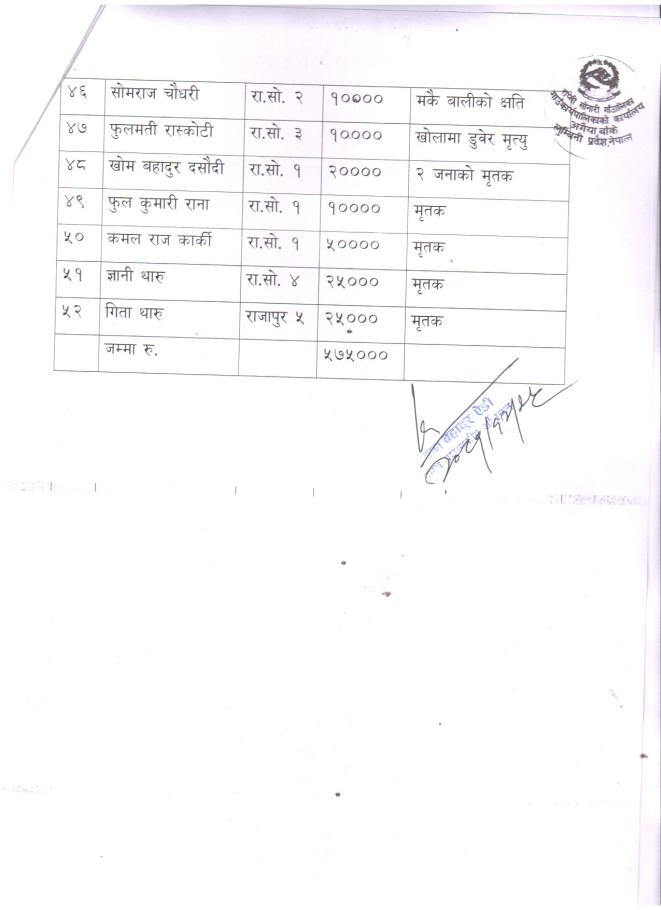 राप्ती सोनारी गाउँपालिका
गाउँकार्यपालिकाको कार्यालय
अगैया बाँके
लुम्बिनी प्रदेश,नेपाल
४६ सोमराज चौधरी रा.सो. २ १०००० मकै बालीको क्षति
४७ फुलमती रास्कोटी रा.सो. ३ १०००० खोलामा डुवेर मृत्यु
४८ खोम बहादुर दसौदी रा.सो. १ २०००० २ जनाको मृतक
४९ फुल कुमारी राना रा.सो. १ १०००० मृतक
५० कमल राज कार्की रा.सो. १ ५०००० मृतक
५१ ज्ञानी थारु रा.सो. ४ २५००० मृतक
५२ गिता थारु राजापुर ५ २५००० मृतक
जम्मा रु. ५७५०००
बहादुर ऐडी